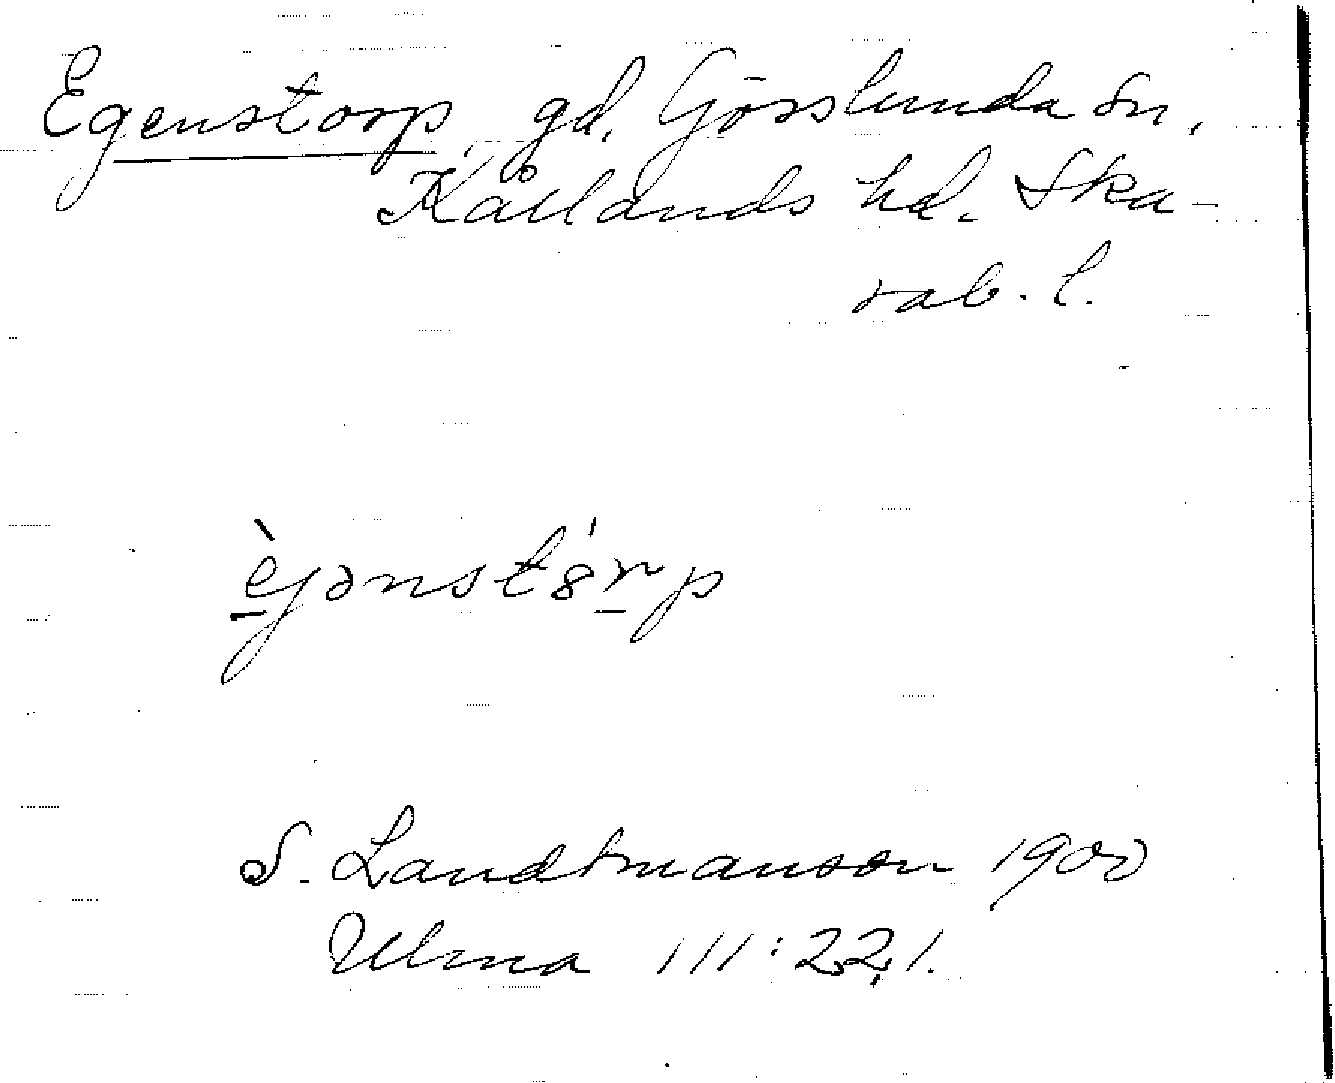 Egenstorp, gd. Görslunda sn,
Kållands hd. Ska-
rab. l.
èjənst8́rp
S. Landtmanson 1900
Ulma 111:221.